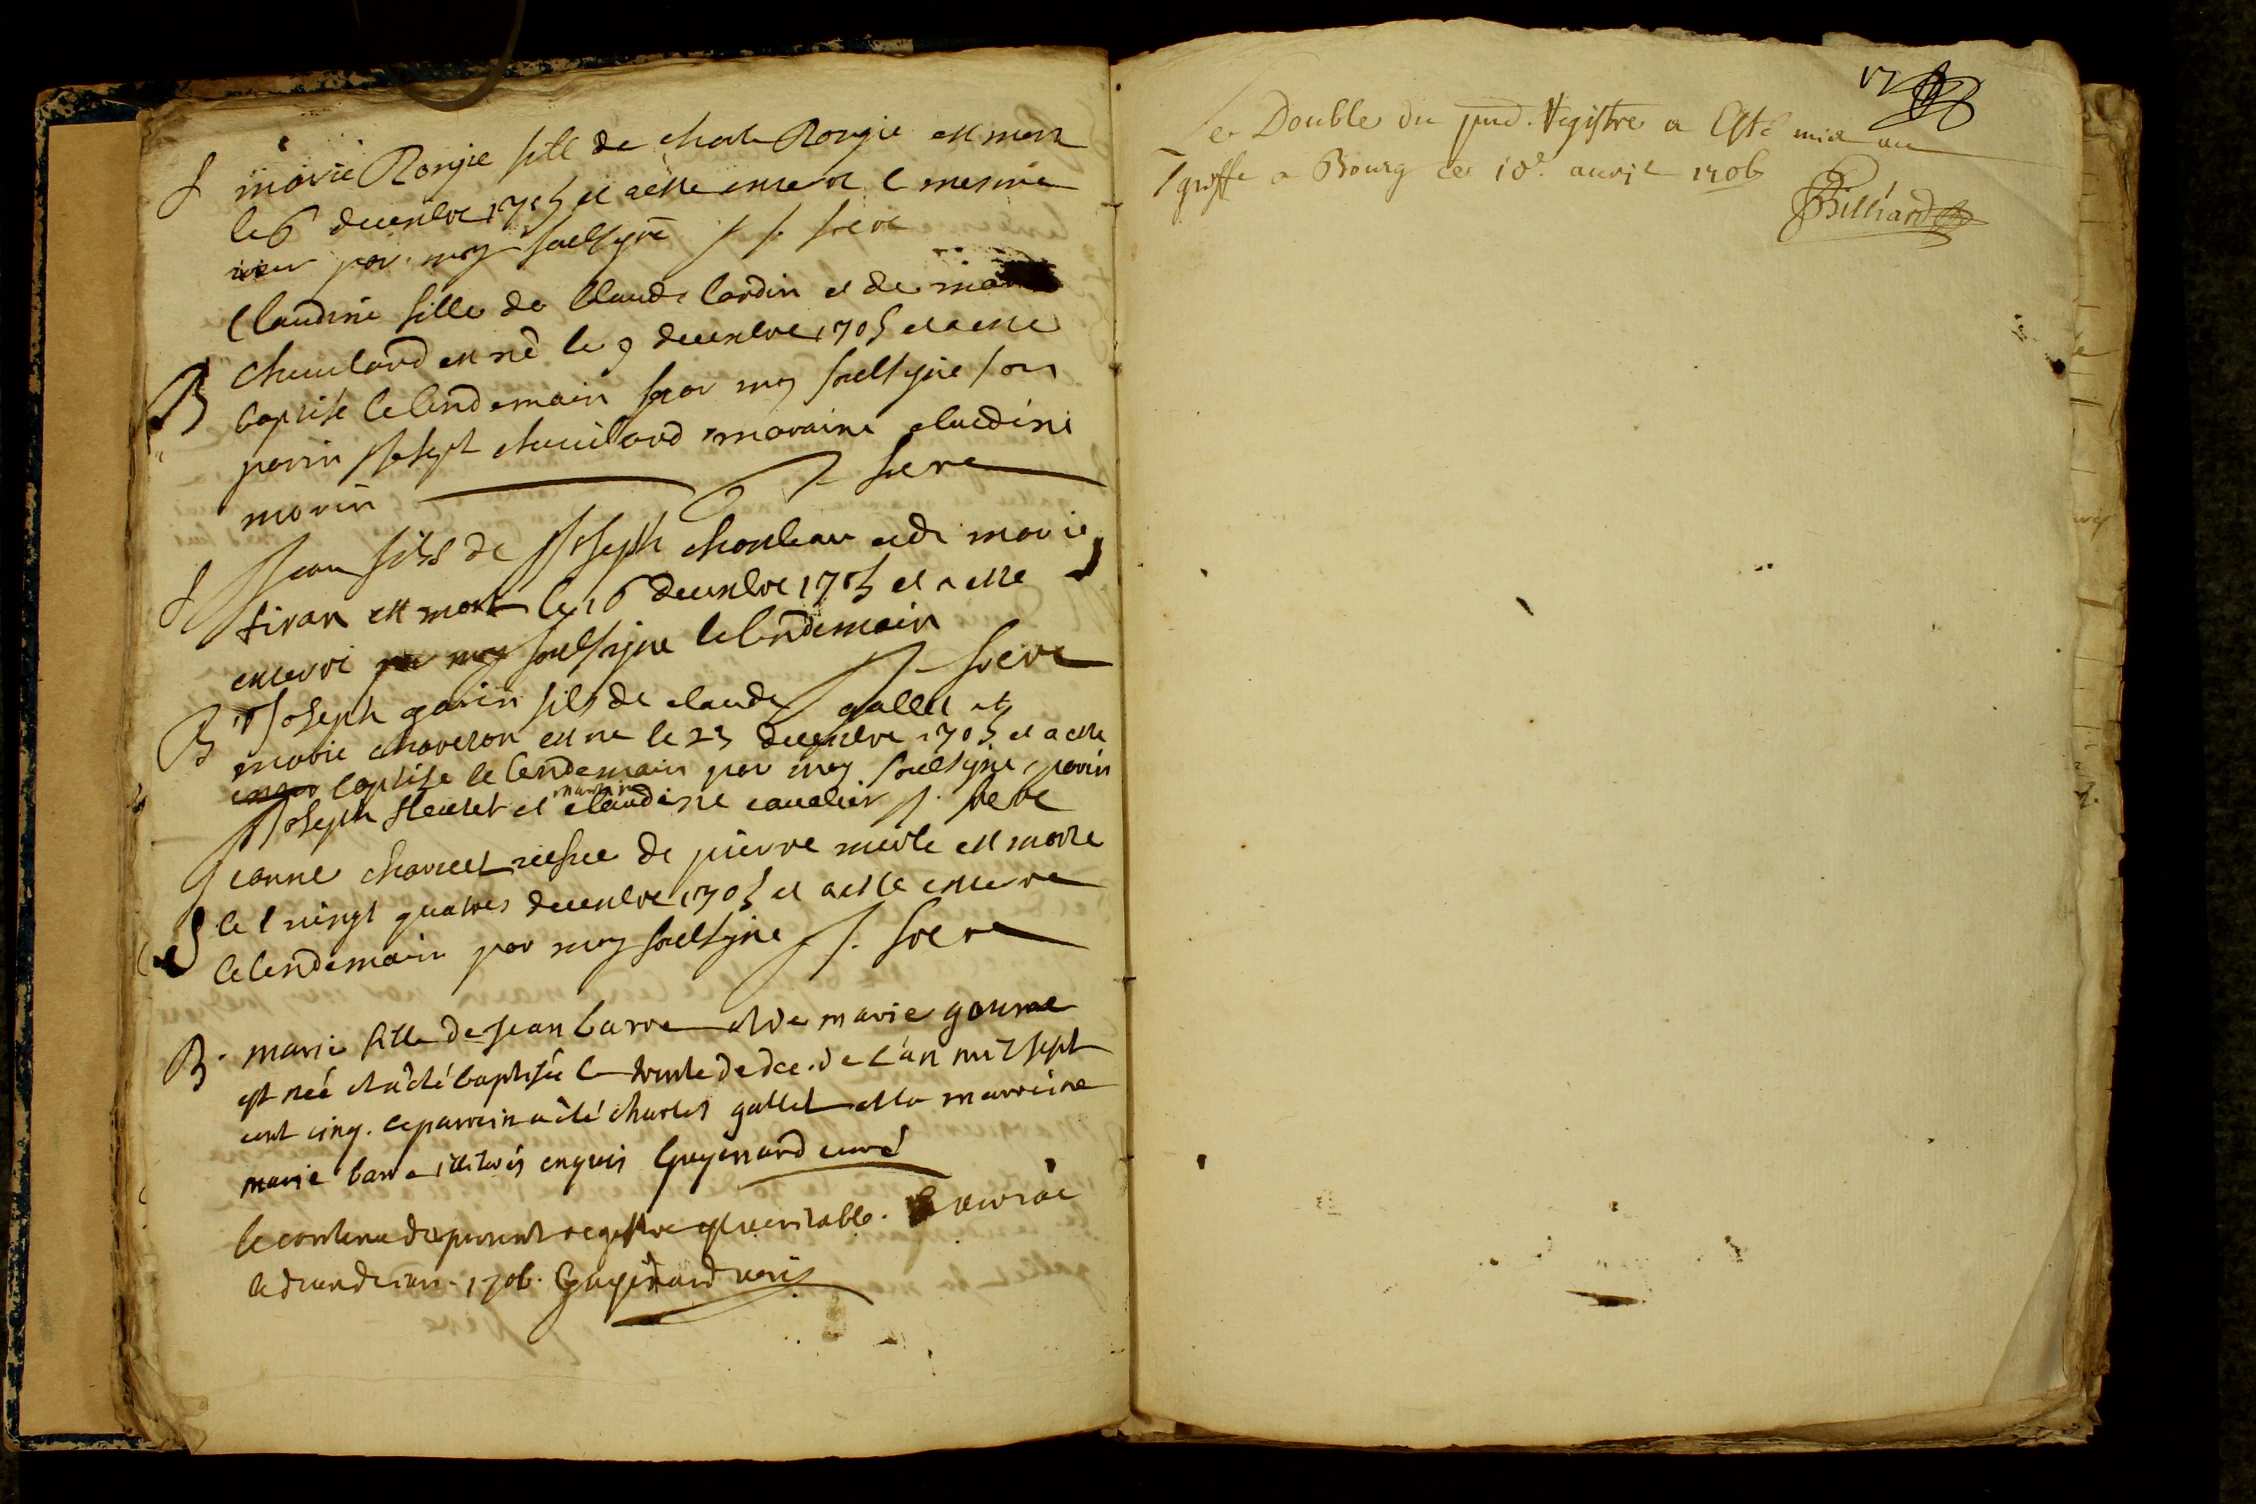 S marie Rongie fille de charle Rongie est mort
le 6 decenbre 1705 et a este enterre l mesme
iour par moy soussigné J. frere
Claudine fille de Claude Cordin et de marie
chevilard est né le 9 decenbre 1705 et a este
B baptisé le lendemain par moy soussigne son
parin Joseph chevilard maraine claudine
morin J. frere
S Jean fils de Joseph chonbar et de marie
tivan est mort le 16 decenbre 1705 et a este
enterré par moy soussigne le lendemain
J. frere
B Joseph gavin fils de claude gallet et
marie chaveron est ne le 23 decenbre 1705 et a este
baptise le lendemain par moy soussigne, parin
Joseph fleuret et maraine claudine cavelier J. frere
Jeanne charvet vefve de pierre merle est morte
S le vingt quatres decenbre 1705 et a este enterre
le lendemain par moy soussigne J. frere
B. marie fille de Jean barre et de marie gourme
est née et a été baptisée le trente de dce. de l'an mil sept
cent cinq. le parrein a été charles gallet et la marreine
marie barre illiterés enquis Guyenard curé
le contenu du present registre est veritable. 
 1706. Guyenard
17
Le Double du pnt. Registre a Esté mis au
greffe a Bourg le 18e. avril 1706
Billiard